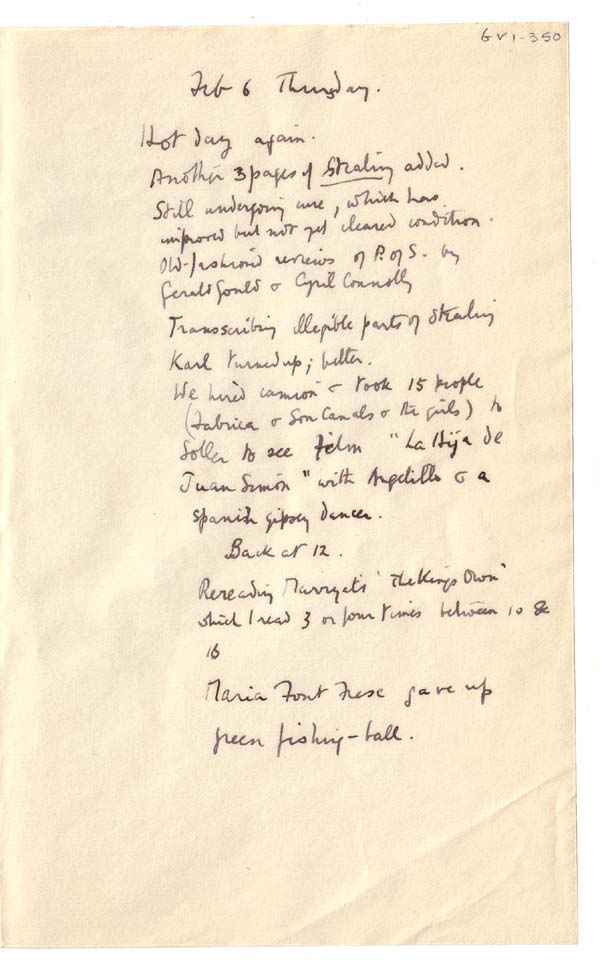 GV1-350
Feb 6 Thursday.
Hot day again.
Another 3 pages of Stealing added.
Still undergoing cure, which has
improved but not yet cleared condition.
Old-fashioned reviews of P. of S. by
Gerald Gould & Cyril Connolly
Transscribing illegible parts of Stealing
Karl turned up; better.
We hired camion & took 15 people
(Fabrica & Son Canals & the girls) to
Soller to see Film "La Hija de
Juan Simón" with Angelillo & a
spanish gipsey dancer.
Back at 12.
Rereading Marryat's 'The Kings Own'
which I read 3 or four times between 10 &
16
Maria Font Frese gave up
green fishing-ball.